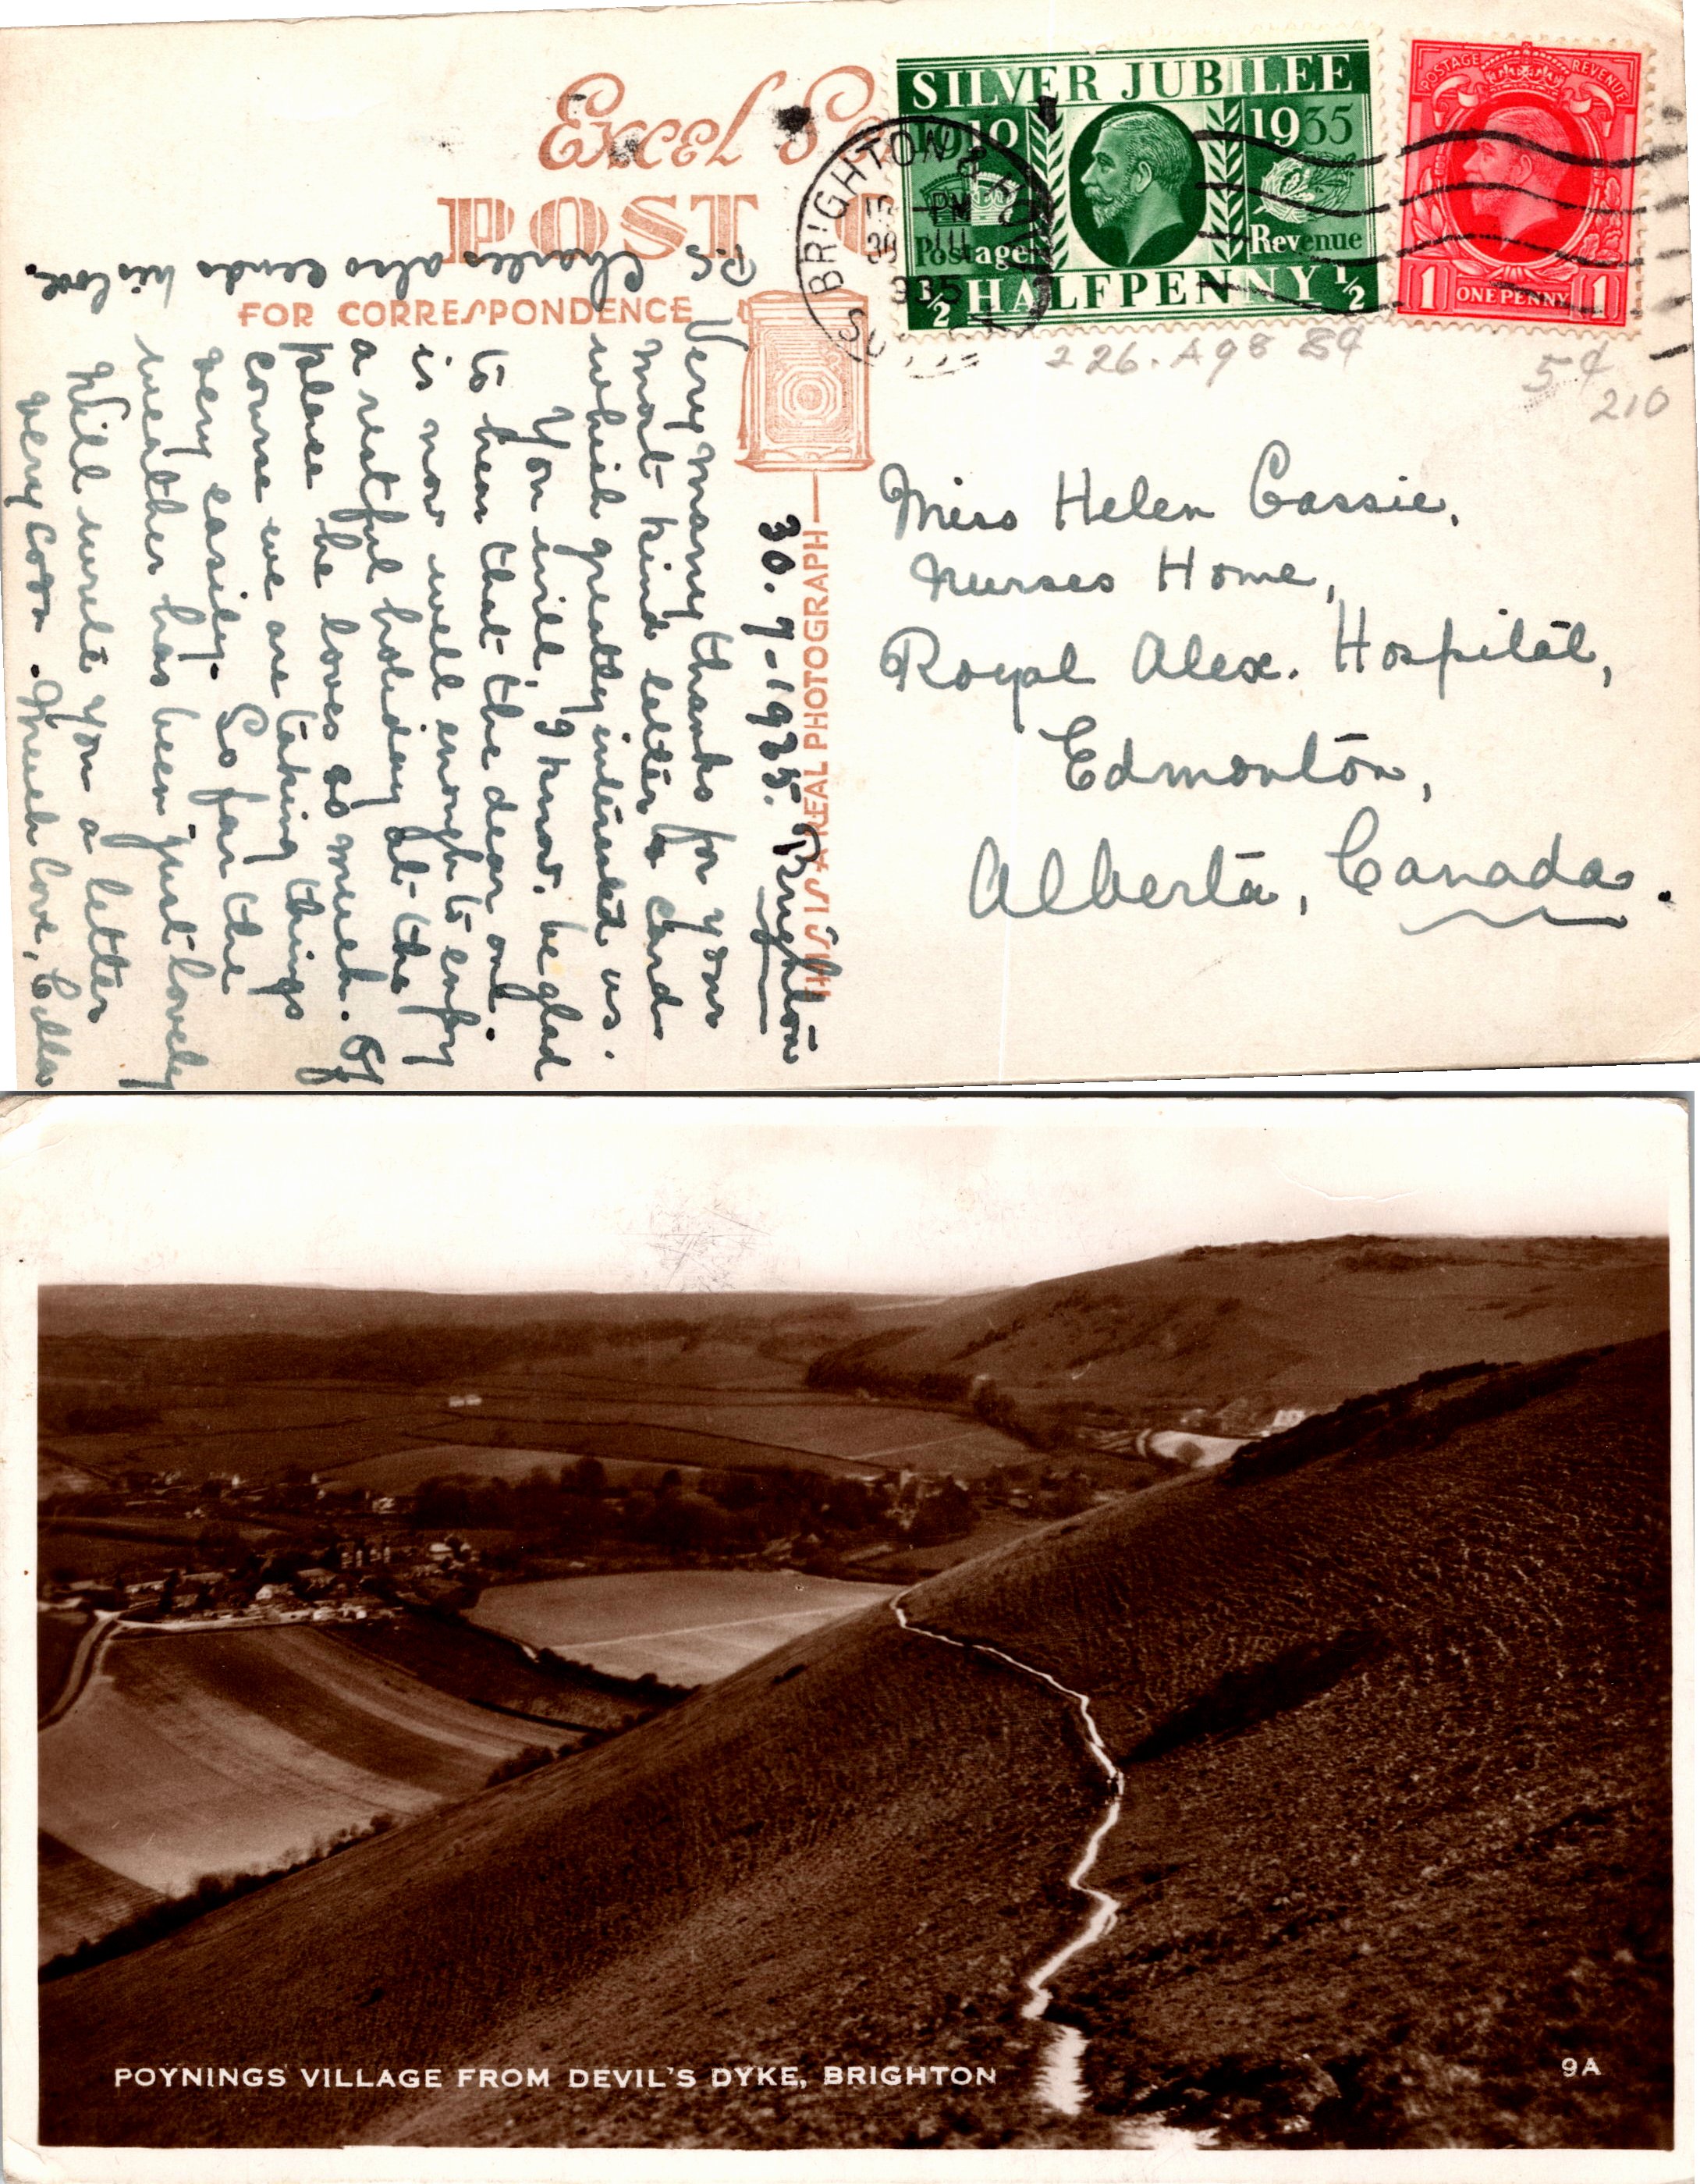 Excel Se
POST C
FOR CORRESPONDENCE
THIS IS A REAL PHOTOGRAPH
SILVER JUBILEE
1910 1935
Postage Revenue
½ HALFPENNY ½
POSTAGE REVENUE
1 ONE PENNY 1
BRIGHTON & HOVE
15 PM
30 JLY
1935
SUSSEX
226. A98 8¢
5¢
210
30.7-1935. Brighton
Very many thanks for your
most kind letter & card
which greatly interested us.
You will, I know, be glad
to hear that the dear one
is now well enough to enjoy
a restful holiday at the
place he loves so much. Of
course we are taking things
very easily. So far the
weather has been just lovely
Will write you a letter
very soon. Much love, Ella
P.S Charles also sends his love.
Miss Helen Cassie,
Nurses Home,
Royal Alex. Hospital,
Edmonton,
Alberta, Canada.
POYNINGS VILLAGE FROM DEVIL'S DYKE, BRIGHTON
9A